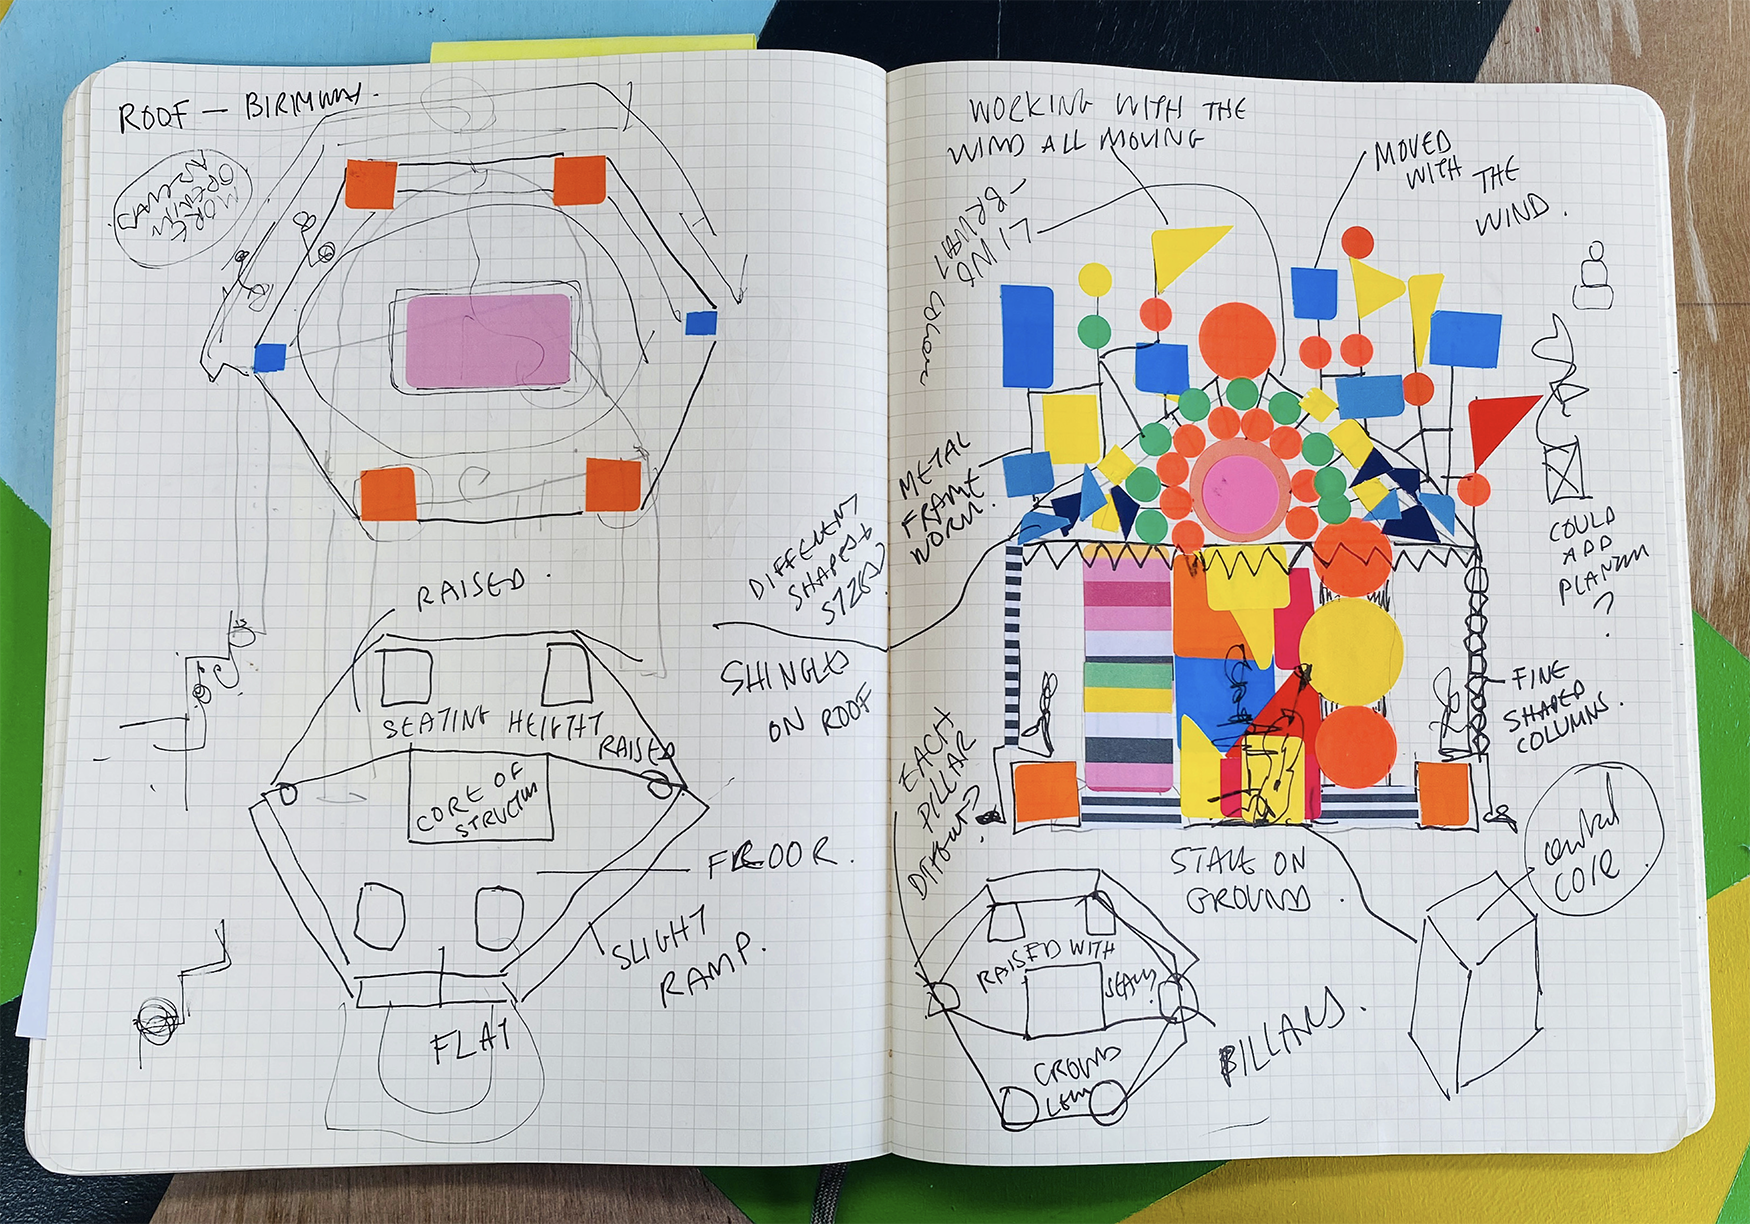 ROOF —
MORE
OPENING
RAISED.
SEATING HEIGHT
RAISED
CORE OF
FLOOR.
SLIGHT
RAMP.
FLAT
DIFFERENT
SHAPES &
SIZES?
SHINGLES
ON ROOF
WORKING WITH THE
WIND ALL MOVING
MOVED
WITH THE
WIND.
WIND
METAL
FRAME
WORK.
COULD
ADD
?
FINE
SHAPED
COLUMNS.
EACH
PILLAR
DIFFERENT?
STAGE ON
GROUND.
central
CORE.
RAISED WITH
SEATING
GROUND
LEVEL
PILLARS.